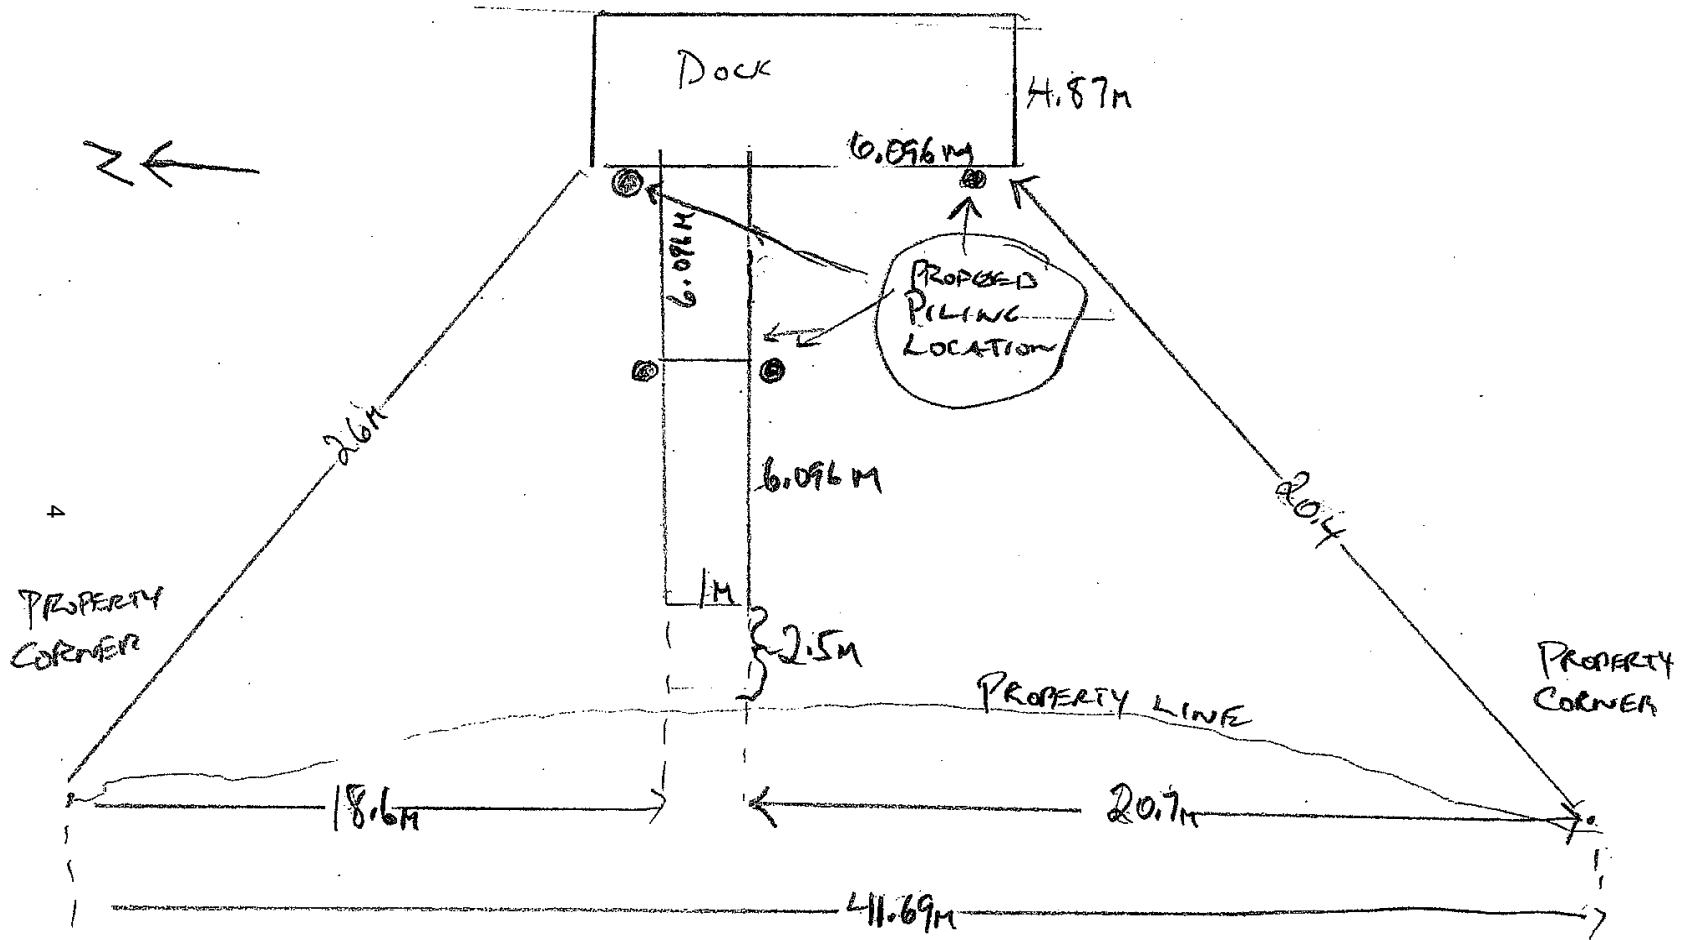 Dock
4.87M
N
6.096M
6.096M
PROPOSED
PILING
LOCATION
26M
6.096M
20.4
4
1M
PROPERTY
CORNER
2.5M
PROPERTY
CORNER
PROPERTY LINE
18.6M
20.7M
41.69M